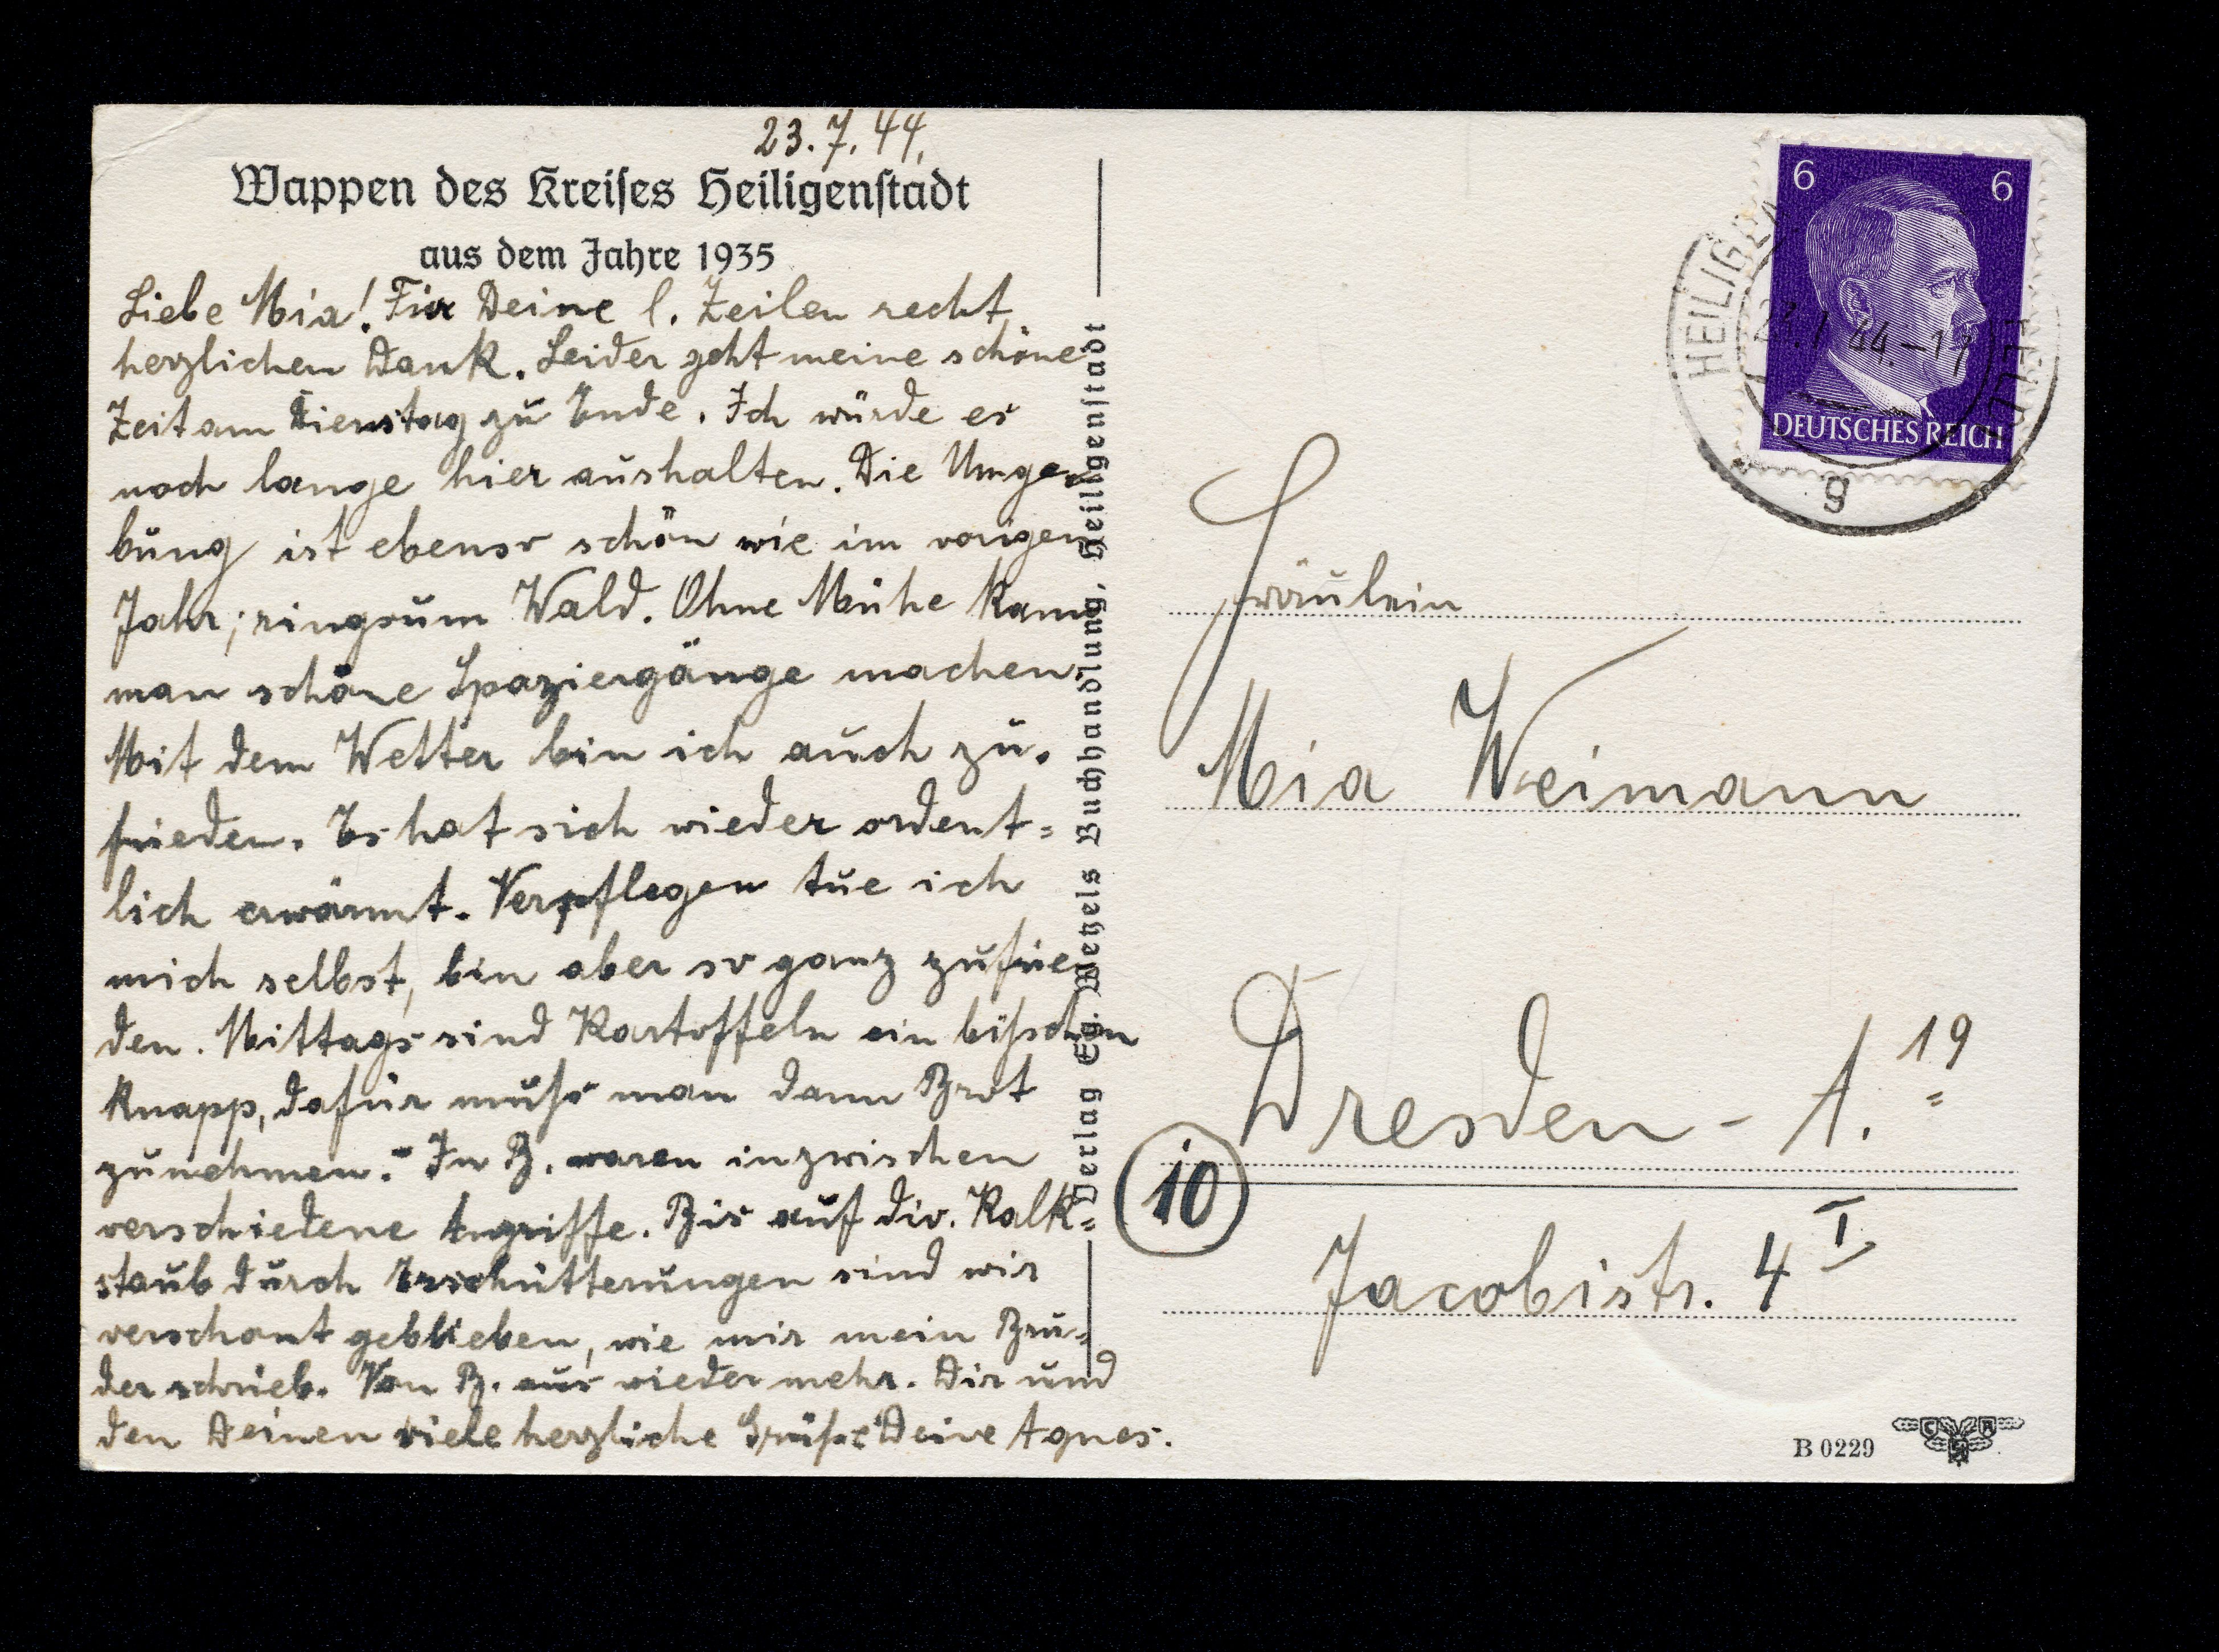 23.7.44.
Wappen des Kreises Heiligenstadt
aus dem Jahre 1935
Liebe Mia! Für Deine l. Zeilen recht
herzlichen Dank. Leider geht meine schöne
Zeit am Dienstag zu Ende. Ich würde es
noch lange hier aushalten. Die Umge-
bung ist ebenso schön wie im vorigen
Jahr; ringsum Wald. Ohne Mühe kann
man schöne Spaziergänge machen.
Mit dem Wetter bin ich auch zu-
frieden. Es hat sich wieder ordent=
lich erwärmt. Verpflegen tue ich
mich selbst, bin aber so ganz zufrie-
den. Mittags sind Kartoffeln ein bißchen
knapp, dafür muß man dann Brot
zunehmen.- In B. waren inzwischen
verschiedene Angriffe. Bis auf div. Kalk=
staub durch Erschütterungen sind wir
verschont geblieben, wie mir mein Bru-
der schrieb. Von B. aus wieder mehr. Dir und
den Deinen viele herzliche Grüße Deine Agnes.
Verlag Ed. Wetzels Buchhandlung, Heiligenstadt
6 6
DEUTSCHES REICH
HEILIGEN
44-17
g
Fräulein
Mia Weimann
Dresden-A. 19
10
Jacobistr. 4 I
B 0229